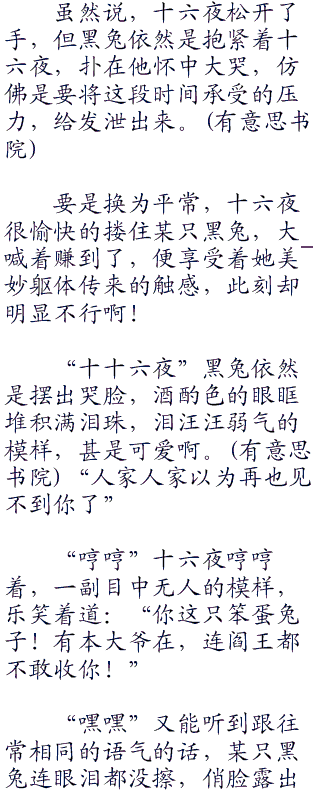 虽然说，十六夜松开了
手，但黑兔依然是抱紧着十
六夜，扑在他怀中大哭，仿
佛是要将这段时间承受的压
力，给发泄出来。(有意思书
院)
要是换为平常，十六夜
很愉快的搂住某只黑兔，大
喊着赚到了，便享受着她美
妙躯体传来的触感，此刻却
明显不行啊！
“十十六夜”黑兔依然
是摆出哭脸，酒酌色的眼眶
堆积满泪珠，泪汪汪弱气的
模样，甚是可爱啊。(有意思
书院)“人家人家以为再也见
不到你了”
“哼哼”十六夜哼哼
着，一副目中无人的模样，
乐笑着道：“你这只笨蛋兔
子！有本大爷在，连阎王都
不敢收你！”
“嘿嘿”又能听到跟往
常相同的语气的话，某只黑
兔连眼泪都没擦，俏脸露出